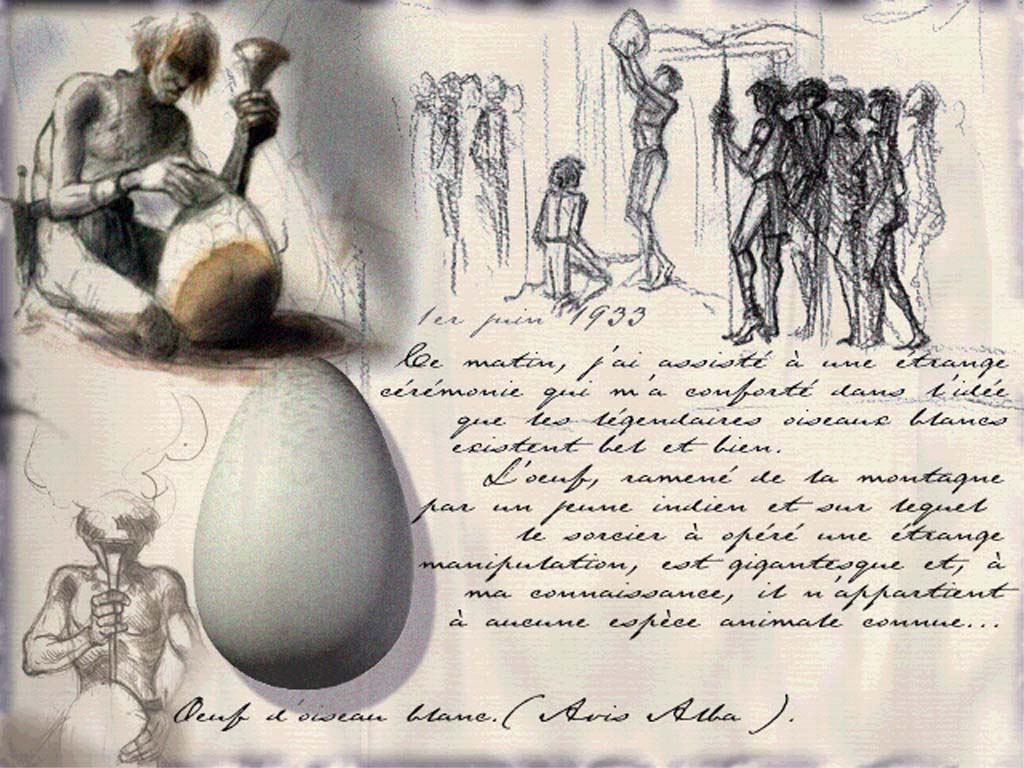 1er juin 1933
Ce matin, j'ai assisté à une étrange
cérémonie qui m'a conforté dans l'idée
que les légendaires oiseaux blancs
existent bel et bien.
L'oeuf, ramené de la montagne
par un jeune indien et sur lequel
le sorcier à opéré une étrange
manipulation, est gigantesque et, à
ma connaissance, il n'appartient
à aucune espèce animale connue...
Oeuf d'oiseau blanc. (Avis Alba ).